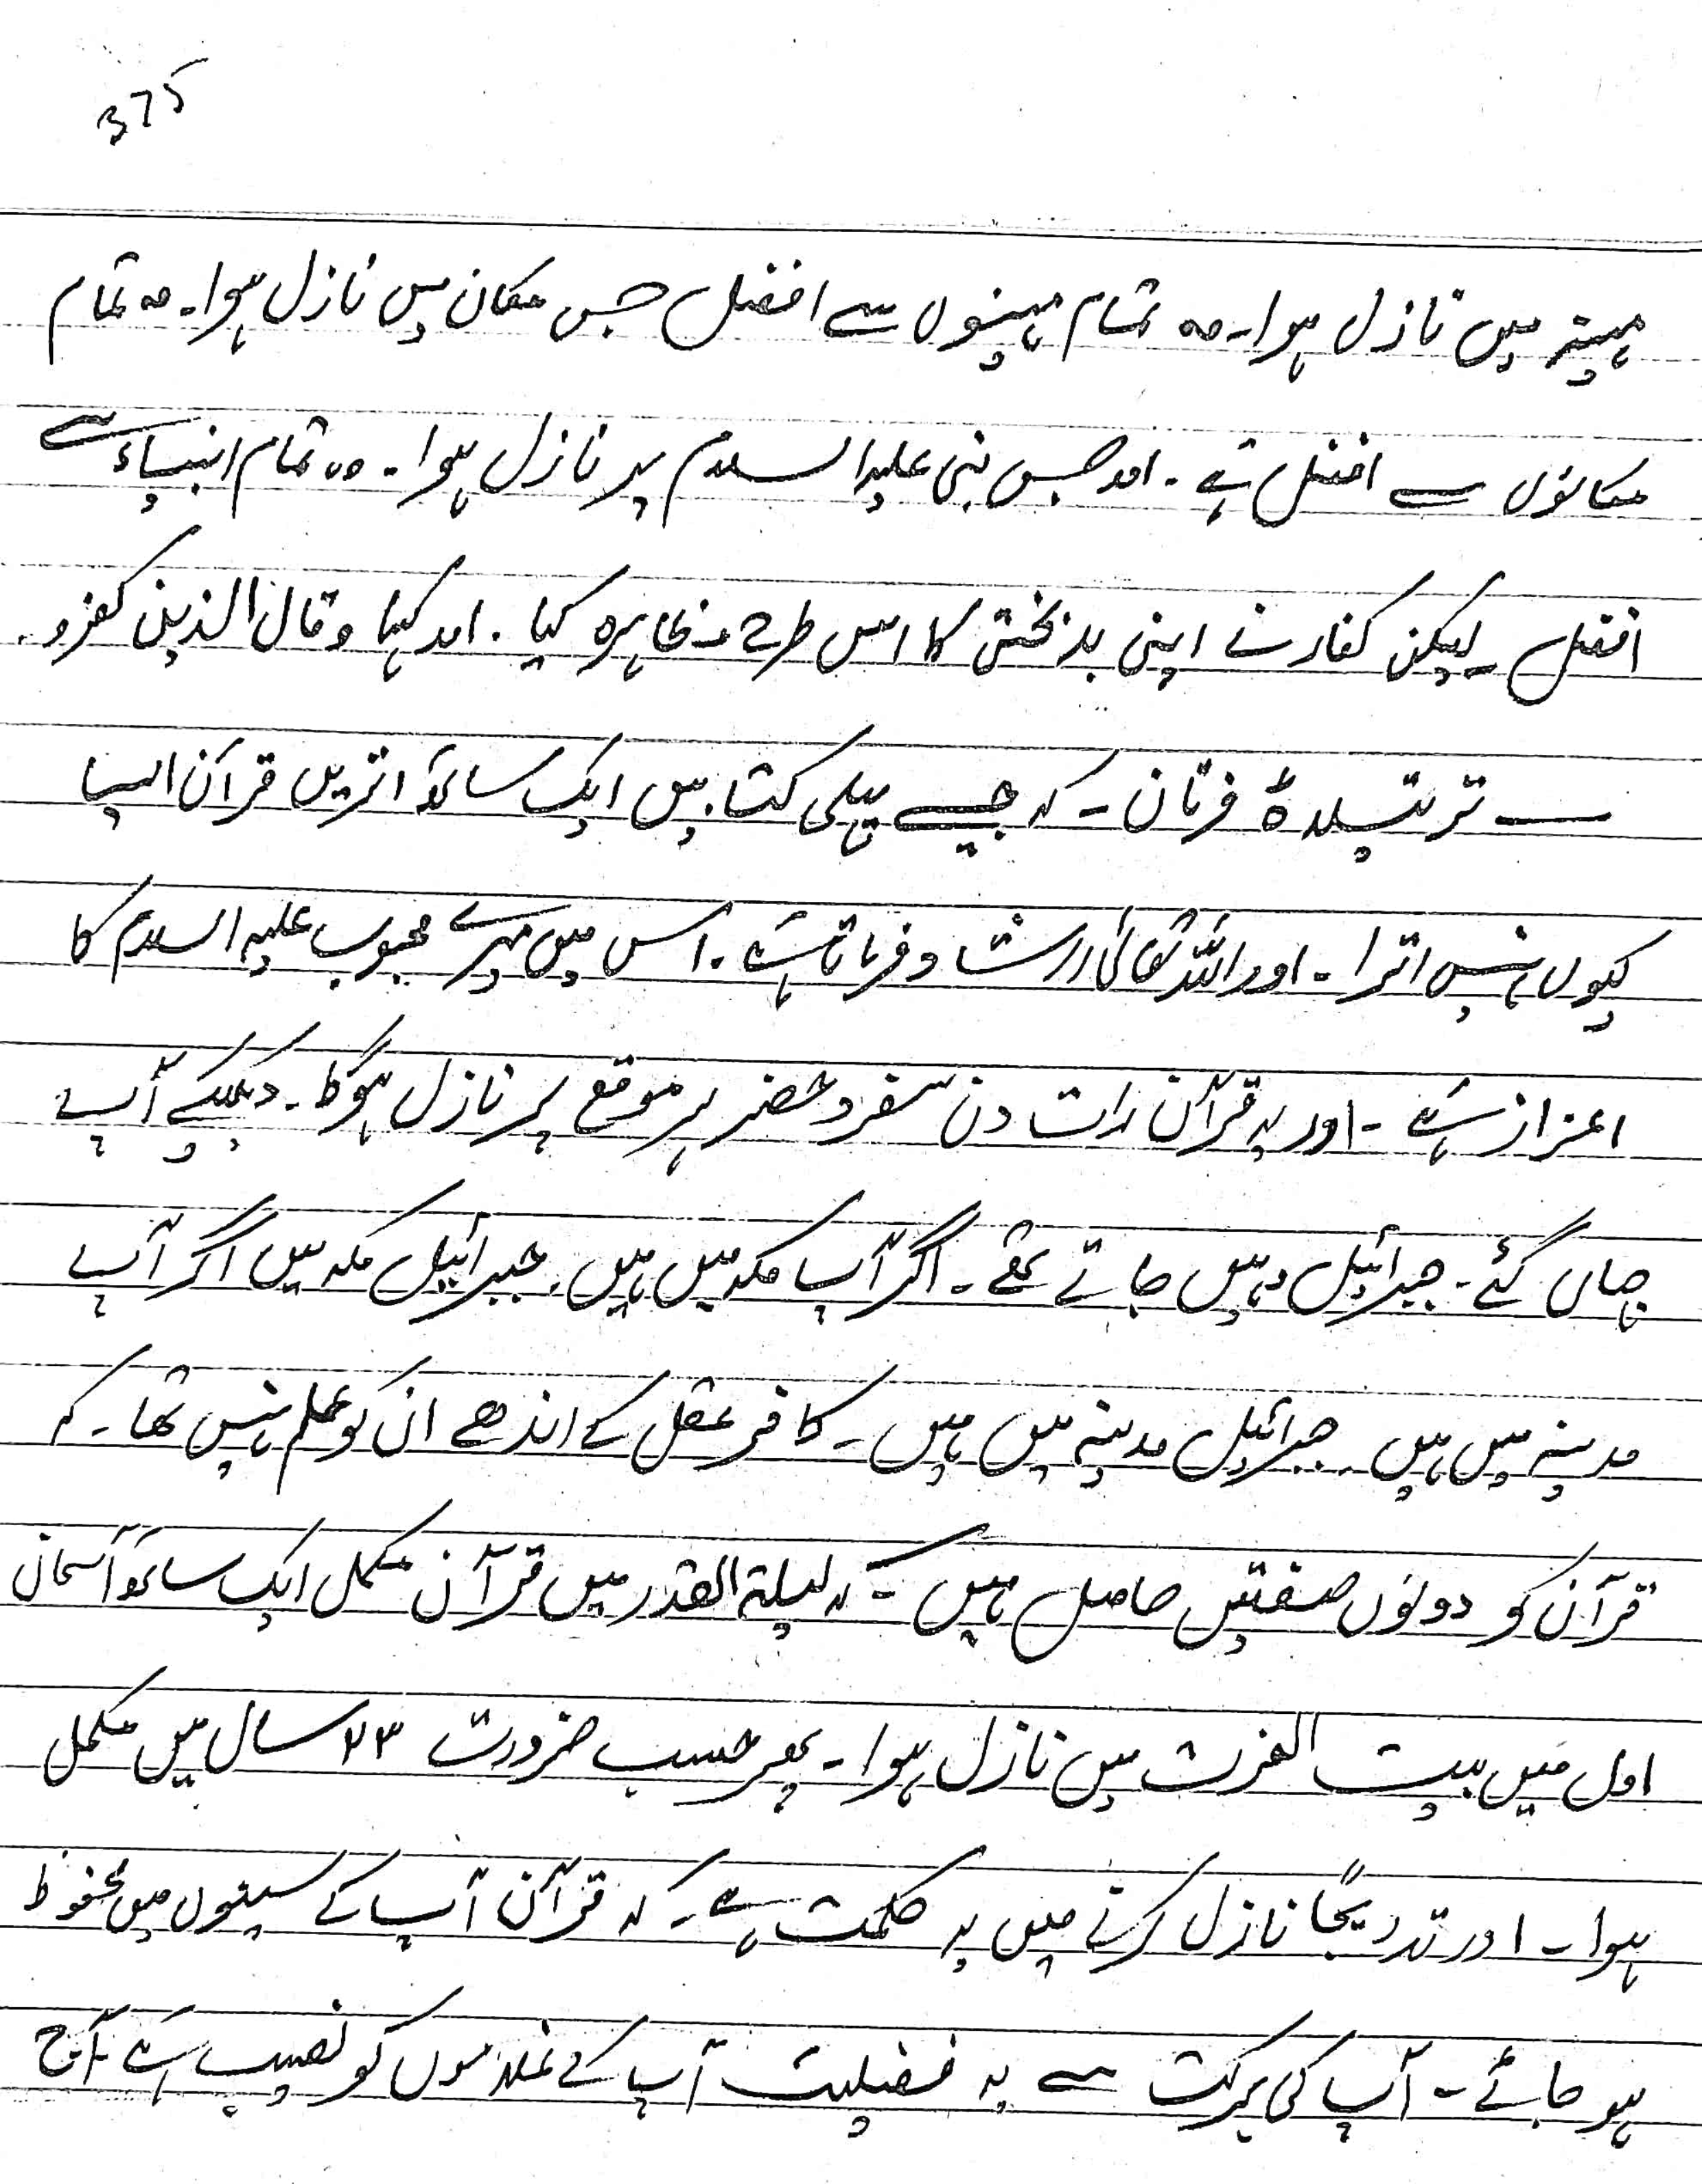 375
مہینہ میں نازل ہوا۔ وہ تمام مہینوں سے افضل جس مکان میں نازل ہوا۔ وہ تمام
مکانوں سے افضل ہے۔ اور جس نبی علیہ السلام پر نازل ہوا۔ وہ تمام انبیاء سے
افضل۔ لیکن کفار نے اپنی بدبختی کا اس طرح مظاہرہ کیا۔ اور کہا وقال الذین کفرو۔
ــــ ترتیلاہ فرقان۔ کہ جیسے پہلی کتابیں ایک ساتھ اتریں قرآن ایسا
کیوں نہیں اترا۔ اور اللہ تعالیٰ ارشاد فرماتا ہے۔ اس میں میرے محبوب علیہ السلام کا
اعزاز ہے۔ اور یہ قرآن رات دن سفر و حضر ہر موقع پر نازل ہوگا۔ دیکھیے آپ
جہاں گئے۔ جبرائیل وہیں جاتے تھے۔ اگر آپ مکہ میں ہیں۔ جبرائیل مکہ میں اگر آپ
مدینہ میں ہیں۔ جبرائیل مدینہ میں ہیں۔ کافر عقل کے اندھے ان کو علم نہیں تھا۔ کہ
قرآن کو دونوں صفتیں حاصل ہیں۔ کہ لیلۃ القدر میں قرآن مکمل ایک ساتھ آسمان
اول میں بیت العزت میں نازل ہوا۔ پھر حسب ضرورت ۲۳ سال میں مکمل
ہوا۔ اور تدریجاً نازل کرنے میں یہ حکمت ہے۔ کہ قرآن آپ کے سینوں میں محفوظ
ہو جائے۔ آپ کی برکت سے یہ فضیلت آپ کے غلاموں کو نصیب ہے۔ آج